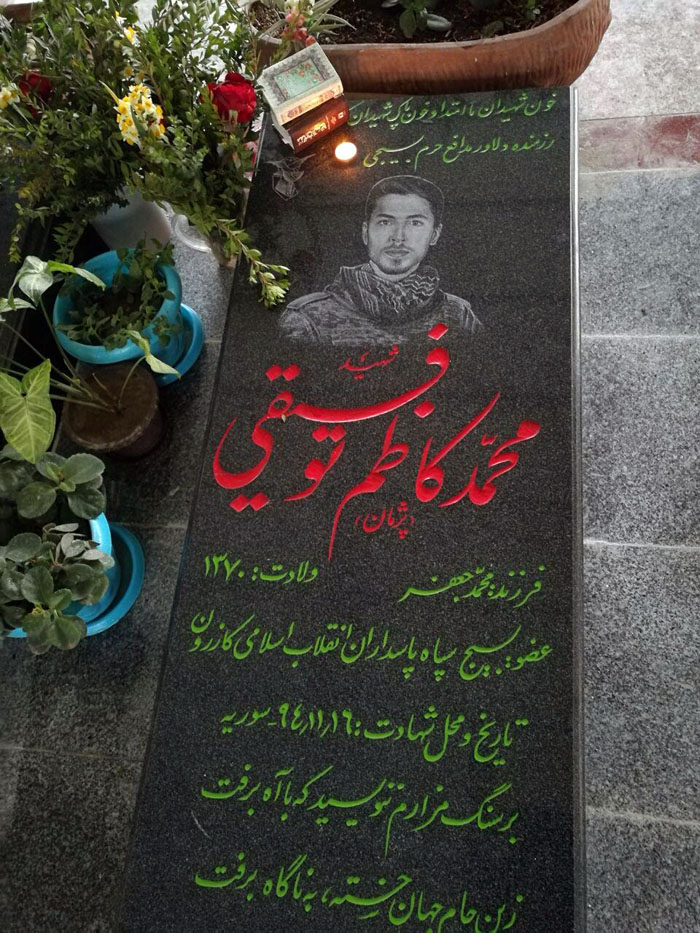 خون شهیدان ما امتداد خون پاک شهیدان
رزمنده دلاور مدافع حرم بسیجی
شهید
محمّد کاظم توفیقی
(پژمان)
فرزند: محمّد جعفر ولادت: ۱۳۷۰
عضو: بسیج سپاه پاسداران انقلاب اسلامی کازرون
تاریخ و محل شهادت: ۹۴/۱۱/۱۶ - سوریه
بر سنگ مزارم ننویسید که با آه برفت
زین جام جهان خسته، به ناگاه برفت